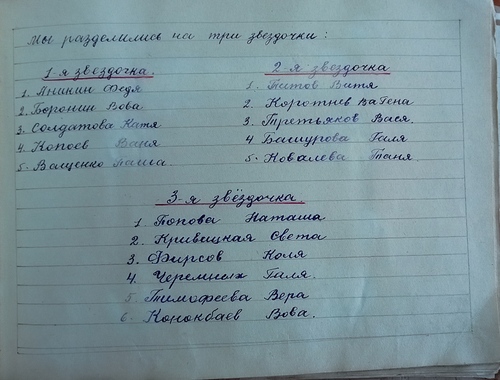 Мы разделились на три звездочки:
1-я звездочка.
1. Янинин Федя
2. Воронин Вова.
3. Солдатова Катя
4. Копоев Ваня
5. Ващенко Паша.
2-я звездочка
1. Титов Витя
2. Коротнев
3. Третьяков Вася.
4. Башурова Галя
5. Ковалева Таня.
3-я звёздочка.
1 Попова Наташа
2. Кривицкая Света
3. Фирсов Коля
4. Черемных Галя.
5. Тимофеева Вера
6. Конокбаев Вова.